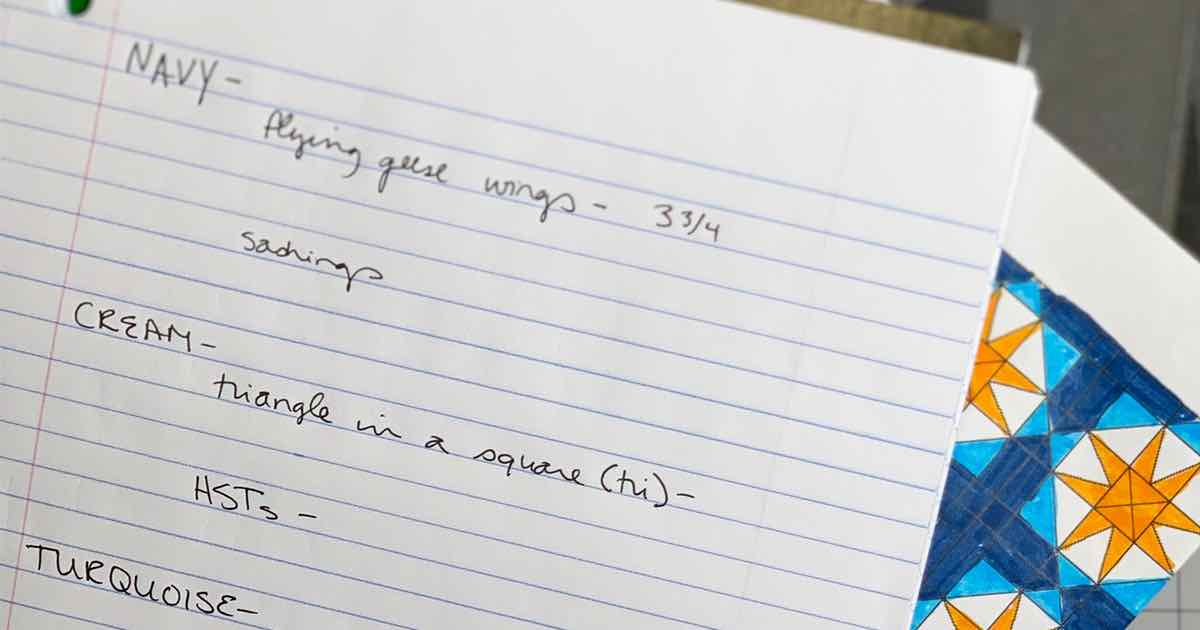 NAVY-
flying geese wings - 3 3/4
sashings
CREAM-
triangle in a square (tri) -
HSTs -
TURQUOISE-